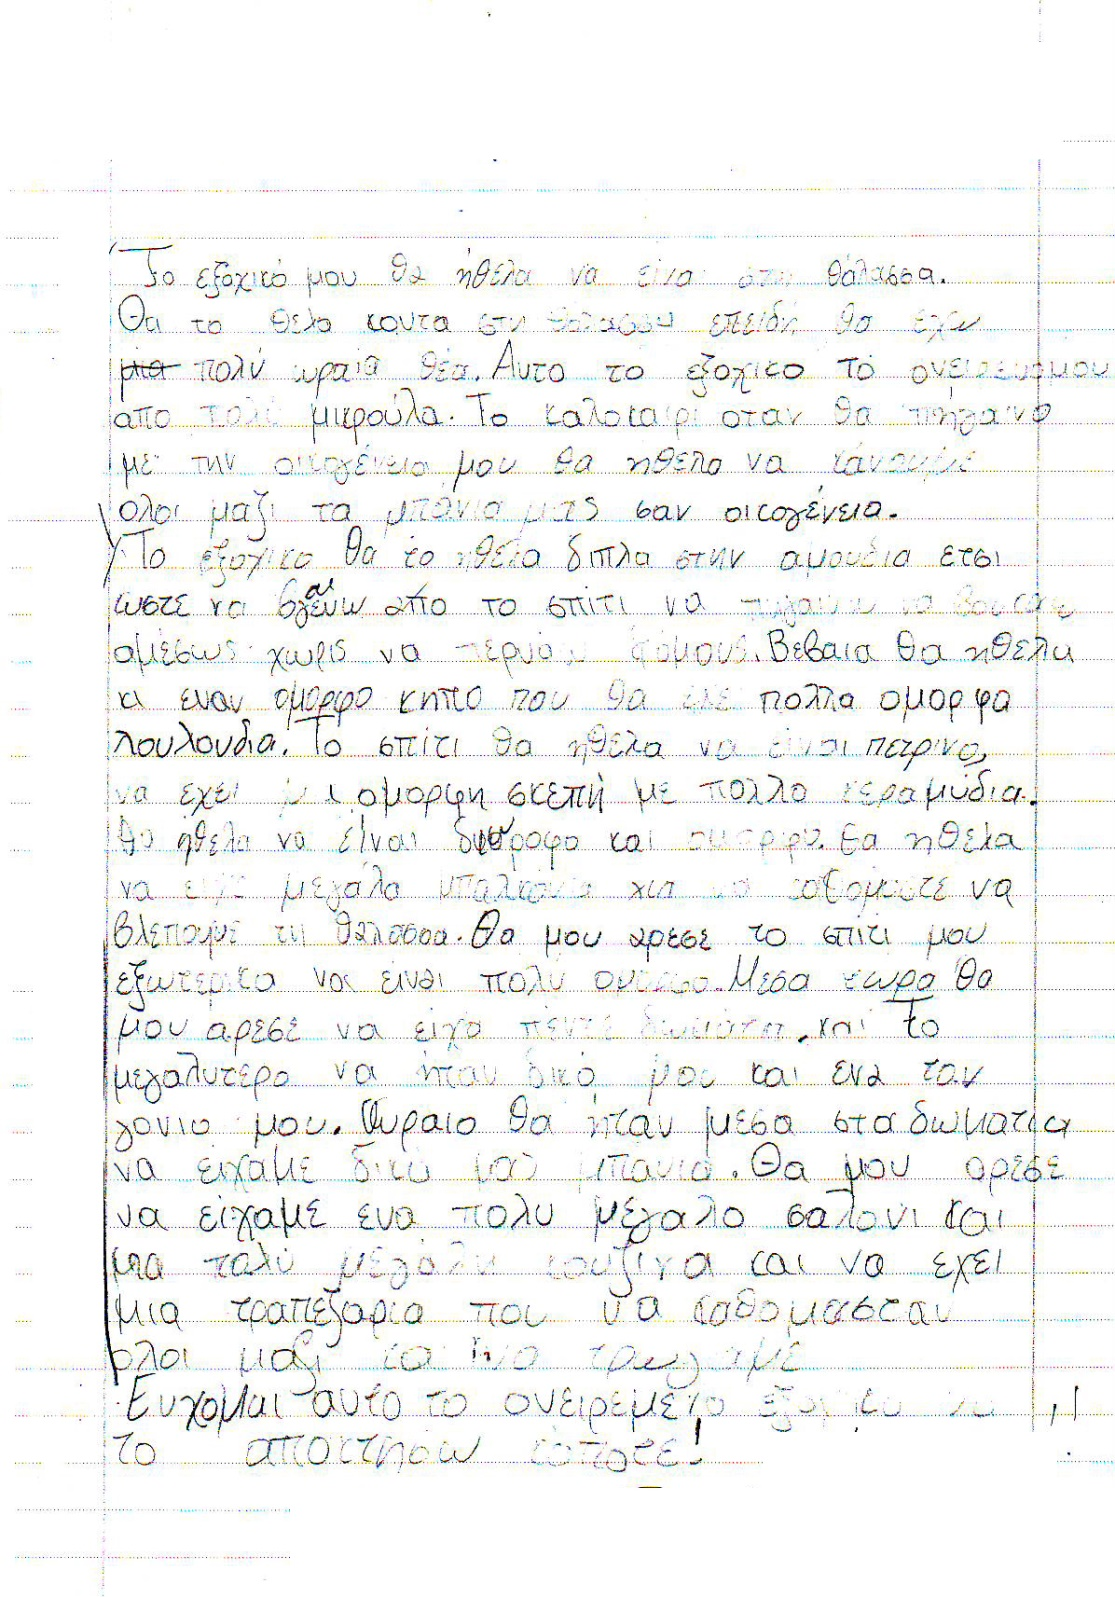 Το εξοχικό μου θα ήθελα να είναι στη θάλασσα.
Θα το θελα κοντα στη θάλασσα επειδή θα έχω
μία πολύ ωραία θέα. Αυτο το εξοχικο το ονειρευομου
απο πολύ μικρούλα. Το καλοκαιρι οταν θα πηγαινα
με την οικογένεια μου θα ηθελα να κάνουμε
ολοι μαζι τα μπανια μας σαν οικογένεια.
Το εξοχικο θα το ηθελα διπλα στην αμουδια ετσι
ώστε να βγαίνω απο το σπιτι να πηγαινω να βουταω
αμέσως χωρις να περνάω δρόμους. Βεβαια θα ηθελα
κι εναν ομορφο κηπο που θα εχε πολλα ομορφα
λουλουδια. Το σπίτι θα ηθελα να είναι πετρινο,
να εχει μια ομορφη σκεπή με πολλα κεραμύδια.
Θα ηθελα να είναι διόροφο και ομορφο. Θα ηθελα
να ειχε μεγάλα μπαλκονια για να καθόμαστε να
βλεπουμε τη θάλασσα. Θα μου αρεσε το σπιτι μου
εξωτερικα να ειναι πολυ ομορφο. Μεσα τωρα θα
μου αρεσε να ειχα πεντε δωματια, και το
μεγαλυτερο να ήταν δικό μου και ενα των
γονιο μου. Ωυραιο θα ήταν μεσα στα δωματια
να ειχαμε δικα μας μπανια. Θα μου αρεσε
να είχαμε ενα πολυ μεγαλο σαλονι και
μια πολύ μεγάλη κουζινα και να εχει
μια τραπεζαρια που να καθομασταν
ολοι μαζι να τρωγαμε
Ευχομαι αυτο το ονειρεμενο εξοχικο να
το αποκτησω κάποτε!